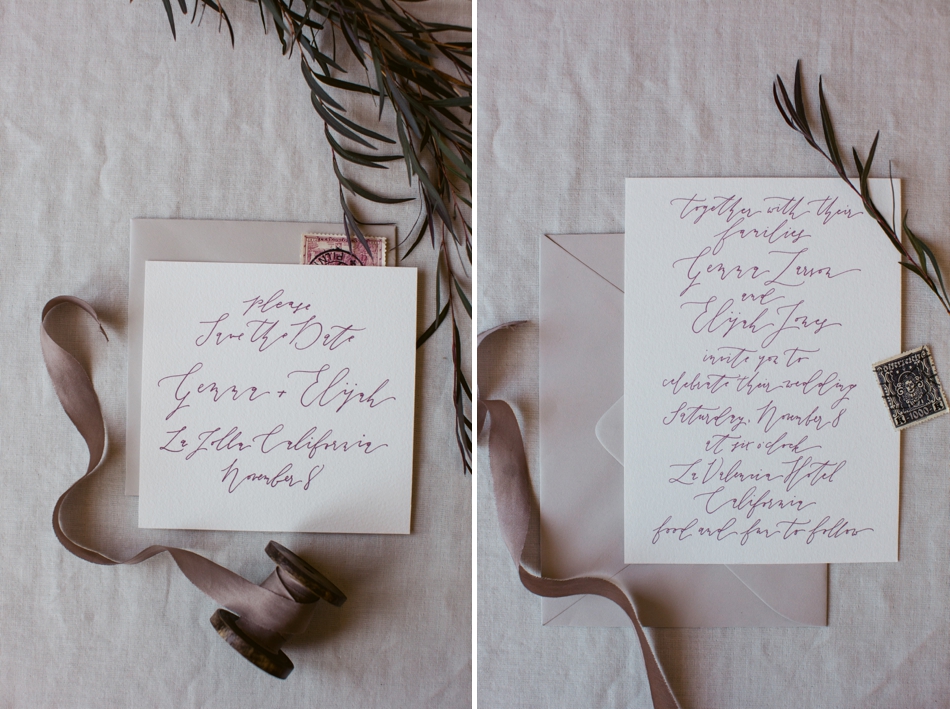 please
Save the Date
Gemma + Elijah
La Jolla California
November 8
together with their
families
Gemma Larson
and
Elijah Jones
invite you to
celebrate their wedding
Saturday, November 8
at six o'clock
La Valencia Hotel
California
food and fun to follow
1000